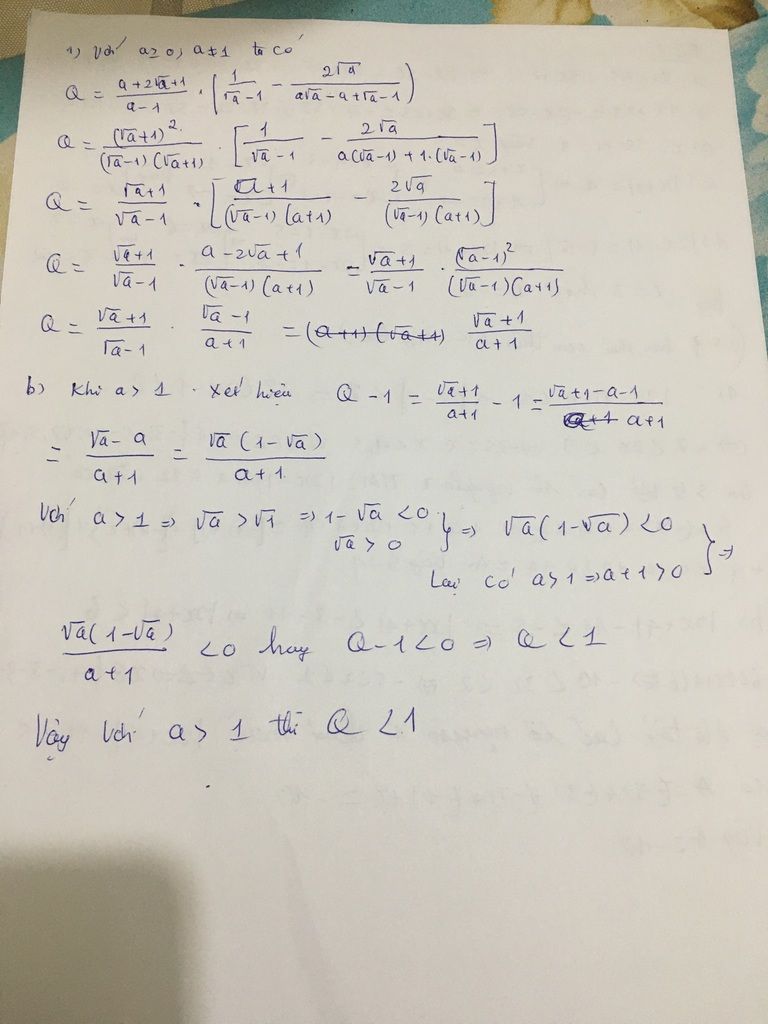 1) Với a ≥ 0, a ≠ 1 ta có
Q = (a+2√a+1)/(a-1) · (1/(√a-1) - 2√a/(a√a-a+√a-1))
Q = (√a+1)²/((√a-1)(√a+1)) · [1/(√a-1) - 2√a/(a(√a-1)+1.(√a-1))]
Q = (√a+1)/(√a-1) · [(a+1)/((√a-1)(a+1)) - 2√a/((√a-1)(a+1))]
Q = (√a+1)/(√a-1) · (a-2√a+1)/((√a-1)(a+1)) = (√a+1)/(√a-1) · (√a-1)²/((√a-1)(a+1))
Q = (√a+1)/(√a-1) · (√a-1)/(a+1) = (√a+1)/(a+1)
b) Khi a > 1 . Xét hiệu Q - 1 = (√a+1)/(a+1) - 1 = (√a+1-a-1)/(a+1)
= (√a-a)/(a+1) = √a(1-√a)/(a+1)
Với a > 1 => √a > √1 => 1-√a < 0
√a > 0 } => √a(1-√a) < 0
Lại có a > 1 => a+1 > 0 } =>
√a(1-√a)/(a+1) < 0 hay Q-1 < 0 => Q < 1
Vậy với a > 1 thì Q < 1